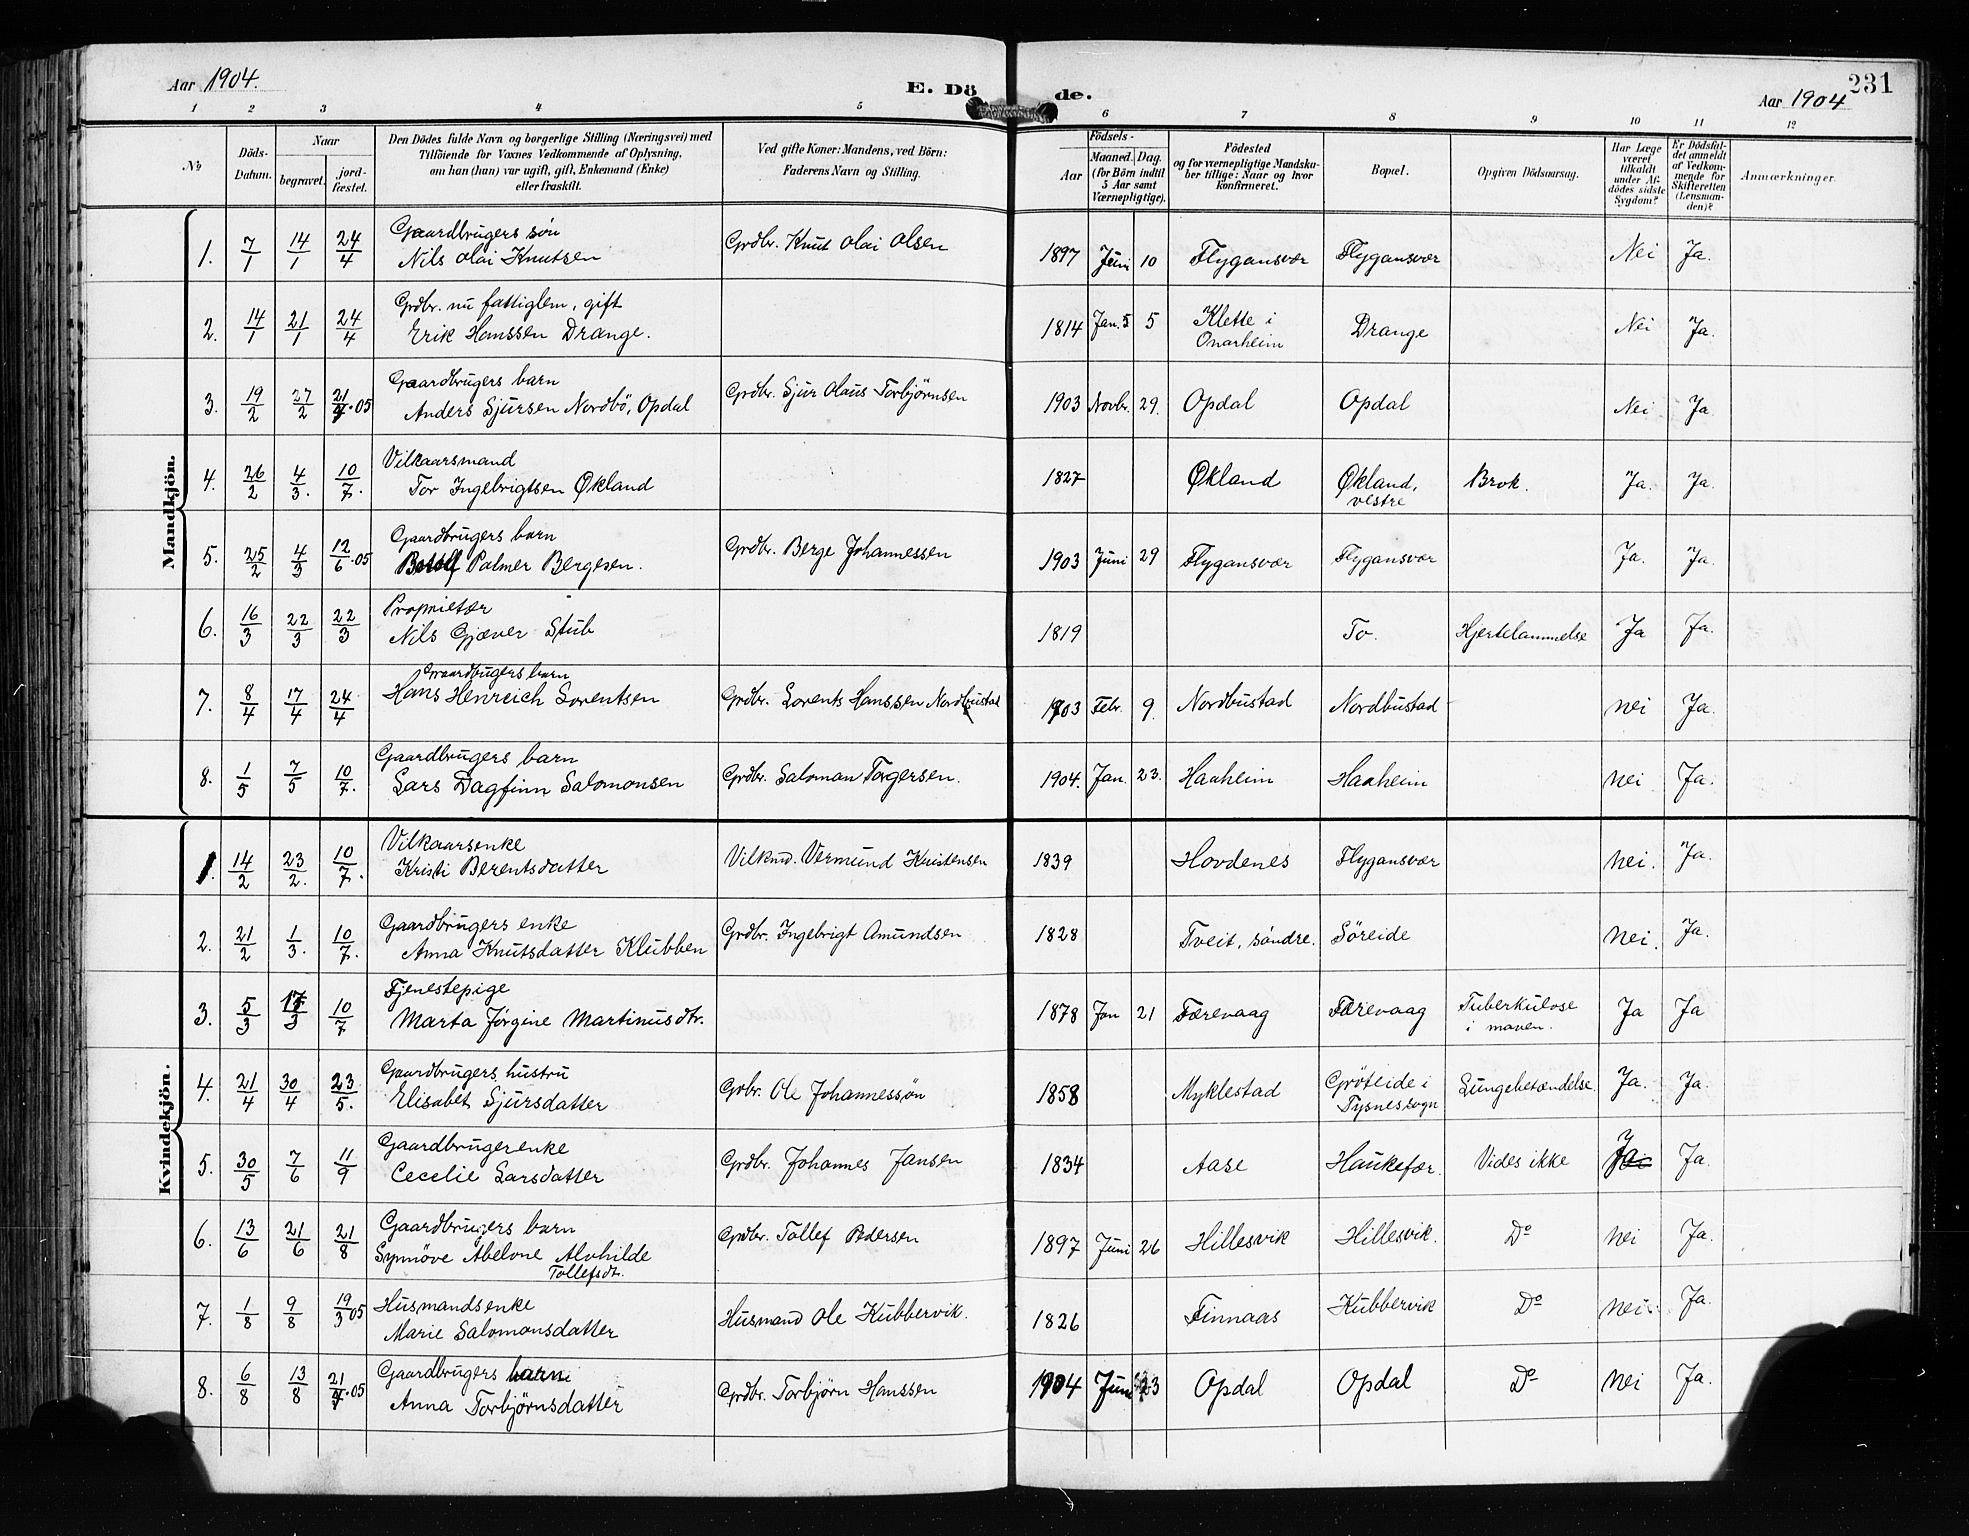 Aar 1904. E. Dö de. Aar 1904 231
1 2 3 4 5 6 7 8 9 10 11 12
No
Döds-Datum.
Naar
begravet.
jord-fæstet.
Den Dödes fulde Navn og borgerlige Stilling (Næringsvei) med
Tilföiende for Voxnes Vedkommende af Oplysning,
om han (hun) var ugift, gift, Enkemand (Enke)
eller fraskilt.
Ved gifte Koner: Mandens, ved Börn:
Faderens Navn og Stilling.
Födsels-
Aar
Maaned. Dag.
(for Börn indtil
5 Aar samt
Værnepligtige).
Födested
og for værnepligtige Mandska-
ber tillige: Naar og hvor
konfirmeret.
Bopæl.
Opgiven Dödsaarsag.
Har Læge
været
tilkaldt
under Af-
dödes sidste
Sygdom?
Er Dödsfal-
det anmeldt
af Vedkom-
mende for
Skifteretten
(Lensman-
den)?
Anmærkninger.
Mandkjön.
1. 7/1 14/1 24/4 Gaardbrugers sön
Nils Olai Knutsen Grdbr. Knut Olai Olsen 1897 Juni 10 Flygansvær Flygansvær Nei Ja.
2. 14/1 21/1 24/4 Grdbr. nu fattiglem, gift
Erik Hanssen Drange. 1814 Jan. 5 5 Klette i Onarheim Drange Nei Ja.
3. 19/2 27/2 21/4.05 Gaardbrugers barn
Anders Sjursen Nordbö, Opdal Grdbr. Sjur Olaus Torbjørnsen 1903 Novbr. 29. Opdal Opdal Nei Ja
4. 26/2 4/3. 10/7. Vilkaarsmand
Tor Ingebrigtsen Økland 1827 Økland Økland, vestre Brok. Ja. Ja.
5. 25/2 4/3 12/6.05 Gaardbrugers barn
Palmer Bergesen. Grdbr. Berge Johannessen 1903 Juni 29 Flygansvær Flygansvær Ja. Ja.
6. 16/3 22/3 22/3 Proprietær
Nils Gjæver Stub 1819 To. Hjertelammelse Ja Ja.
7. 8/4 17/4 24/4 Gaardbrugers barn
Hans Henreich Lorentsen Grdbr. Lorents Hanssen Nordbustad 1903 Febr. 9. Nordbustad Nordbustad Nei Ja.
8. 1/5 7/5 10/7. Gaardbrugers barn
Lars Dagfinn Salomonsen Grdbr. Saloman Torgersen. 1904. Jan. 23. Haaheim Haaheim Nei Ja.
Kvindekjön.
1. 14/2 23/2. 10/7. Vilkaarsenke
Kristi Berentsdatter Vilkmd. Vermund Kristensen 1839 Hovdenes Flygansvær Nei. Ja.
2. 21/2 1/3. 10/7. Gaardbrugers enke
Anna Knutsdatter Klubben Grdbr. Ingebrigt Amundsen 1828 Tveit, söndre. Söreide Nei. Ja.
3. 5/3 /3 10/7 Tjenestepige
Marta Jörgine Martinusdtr. 1878 Jan 21 Færevaag Færevaag Tuberkulose i maven. Ja Ja
4. 21/4 30/4 23/5. Gaardbrugers hustru
Elisabet Sjursdatter Grbr. Ole Johannessön 1858 Myklestad Gröteide i Tysnes sogn Lungebetændelse Ja. Ja.
5. 30/5 7/6 11/9 Gaardbrugerenke
Cecelie Larsdatter Grdbr. Johannes Jansen 1834 Aase Haukefær. Vides ikke Ja.
6. 13/6 21/6 21/8 Gaardbrugers barn
Synnöve Abelone Alvhilde
Tollefsdt. Grdbr. Tollef Pedersen 1897 Juni 26 Hillesvik Hillesvik. Do Nei Ja.
7. 1/8 9/8 19/3 05 Husmandsenke
Marie Salomonsdatter Husmand Ole Kubbervik. 1826 Finnaas Kubbervik Do Nei. Ja.
8. 6/8 13/8 21/4.05 Gaardbrugers barn
Anna Torbjörnsdatter Grdbr. Torbjörn Hanssen 1904 Juni 23 Opdal Opdal Do Nei Ja.